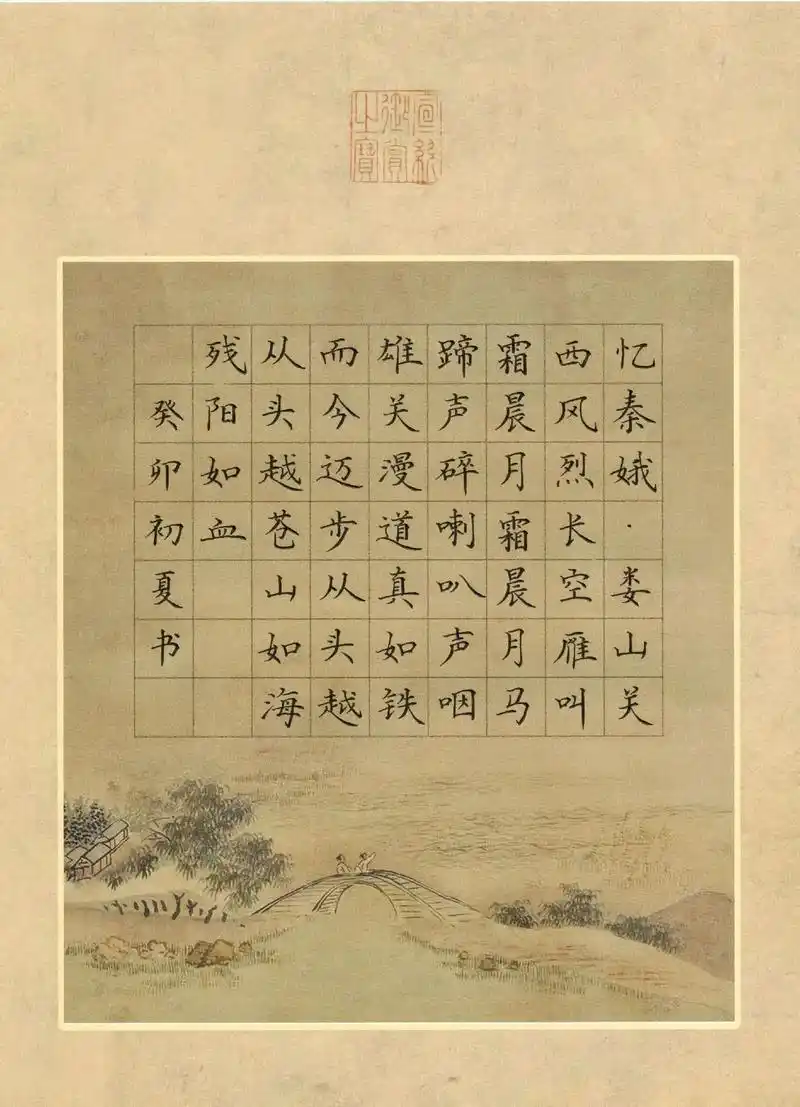 宣統御賞之寶
忆秦娥·娄山关
西风烈长空雁叫
霜晨月霜晨月马
蹄声碎喇叭声咽
雄关漫道真如铁
而今迈步从头越
从头越苍山如海
残阳如血
癸卯初夏书